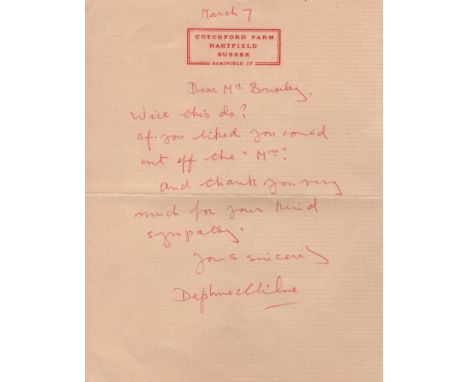 March 7
COTCHFORD FARM
HARTFIELD
SUSSEX
HARTFIELD 17
Dear Mr Brierley,
Will this do?
If you liked you could
cut off the "Mrs"!
And thank you very
much for your kind
sympathy.
Yours sincerely
Daphne Milne